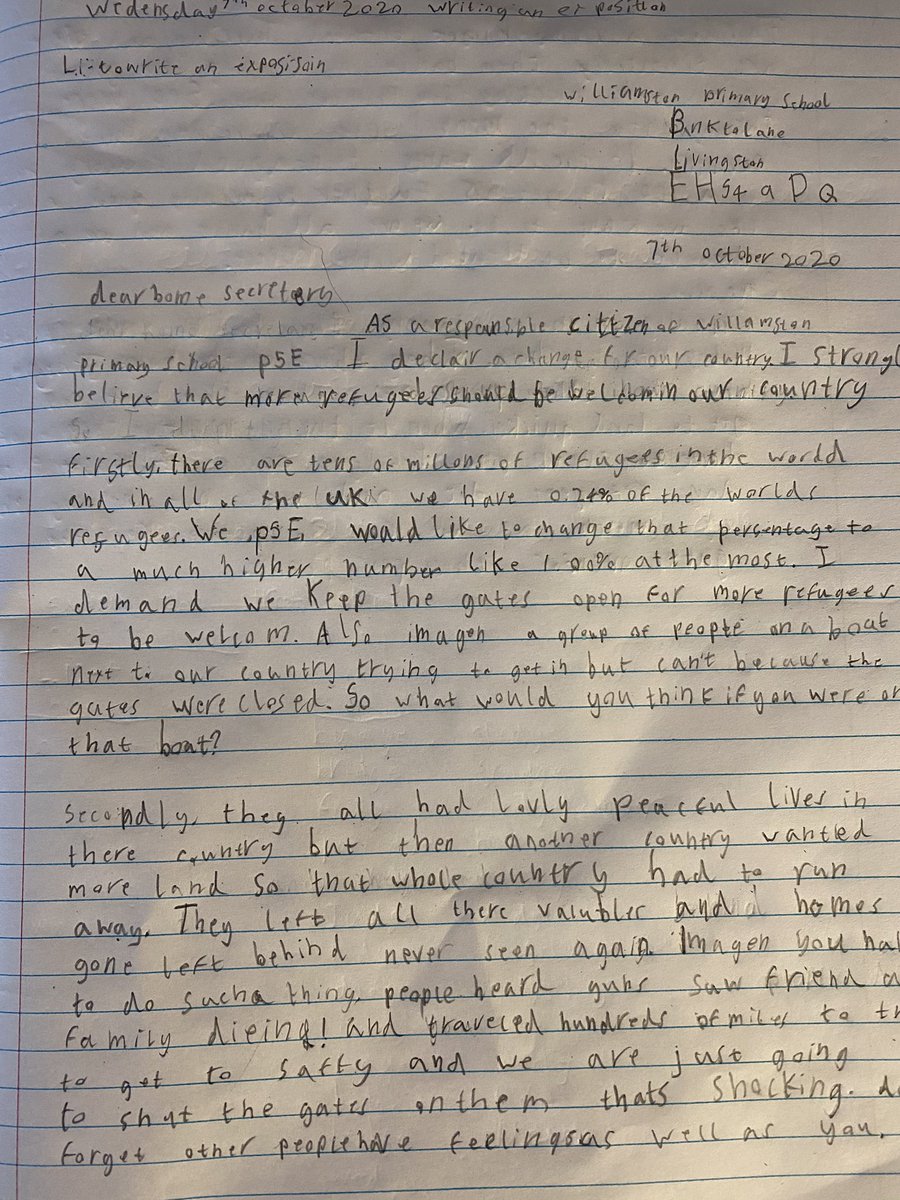 Wedensday 7th october 2020 writing an exposition
L.I:-to write an exposisoin
williamston primary school
Bnktolane
Livingston
EH54 a D Q
7th october 2020
dear home secretery
As a responsible cittzen of Willamston
primary school p5E I declair a change for our country. I strongl
belirve that more refugees should be welcom in our country
firstly, there are tens of millons of refugees in the world
and in all of the UK we have 0.24% of the worlds
refugees. We, p5E, would like to change that persentage to
a much higher number like 1.00% at the most. I
demand we Keep the gates open for more refugees
to be welcom. Also imagen a group of people on a boat
next to our country trying to get in but can't because the
gates were closed. So what would you think if you were on
that boat?
Secondly, they all had lovly peaceful lives in
there country but then another country wanted
more land so that whole country had to run
away. They left all there valubles and homes
gone left behind never seen again. Imagen you had
to do such a thing, people heard guns saw friend a
family dieing! and traveled hundreds of miles to t
to get to safty and we are just going
to shut the gates on them thats shocking. d
forget other people have feelings as well as you.